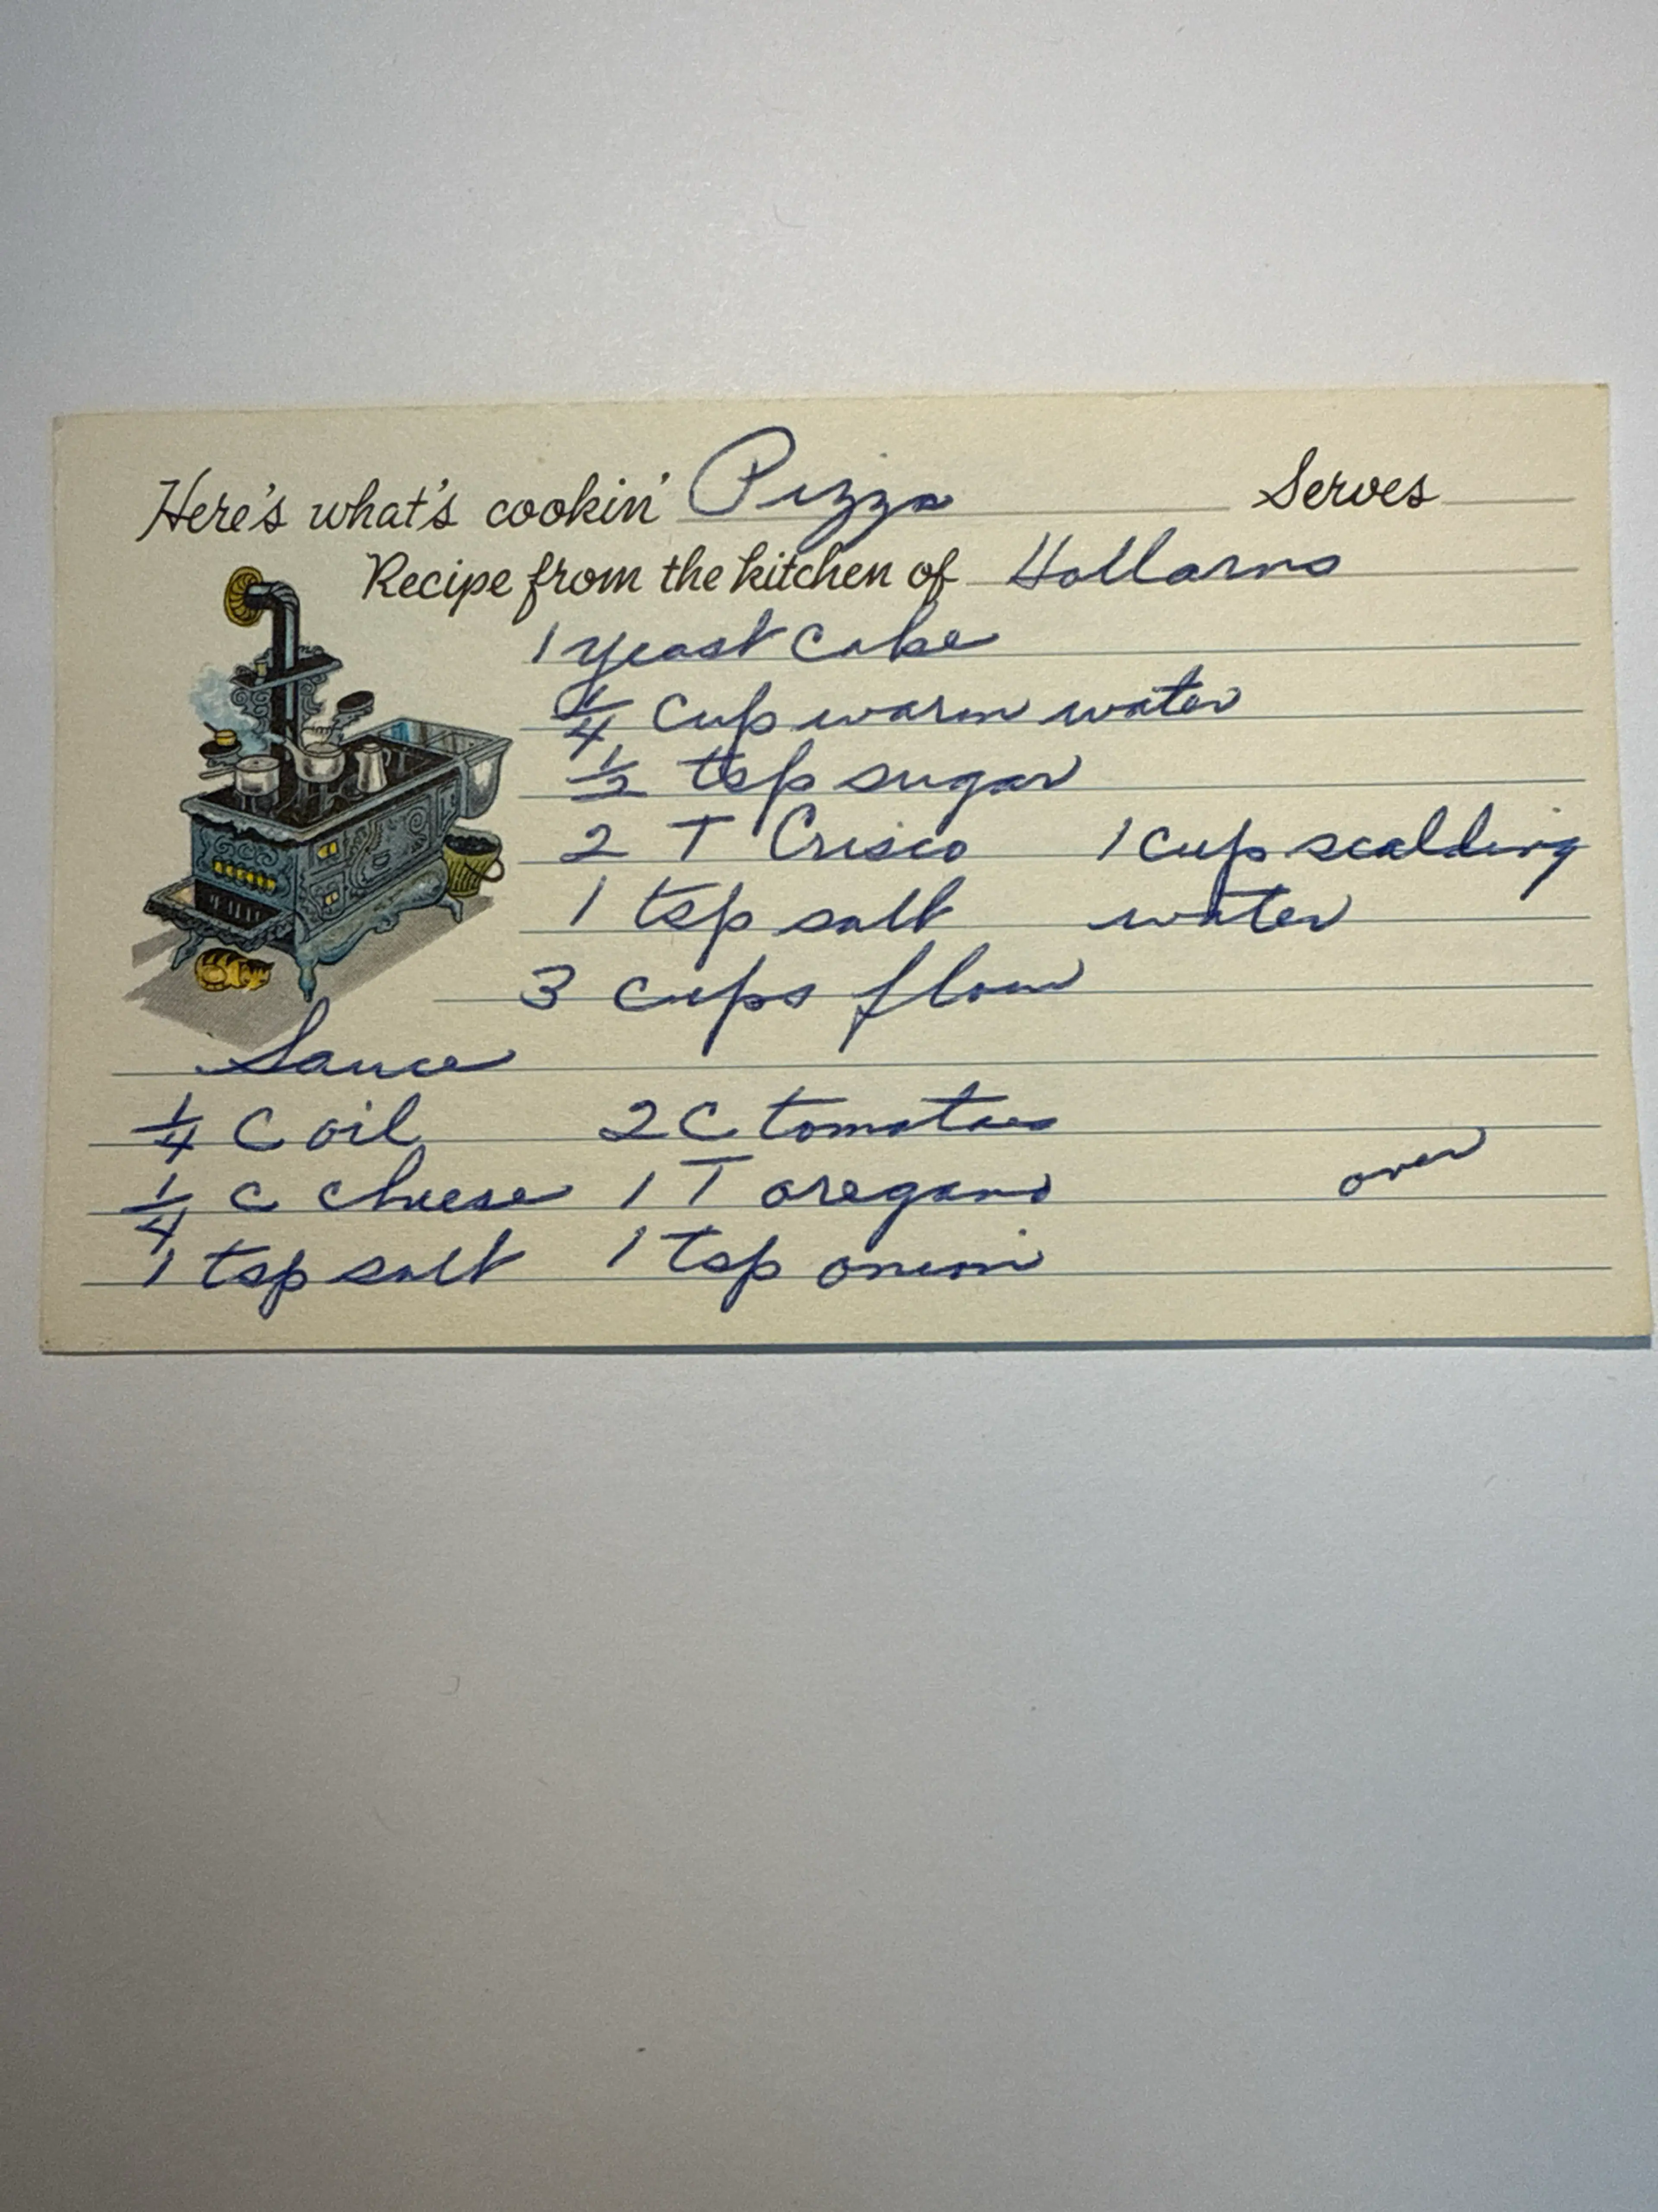 Here's what's cookin' Pizza Serves
Recipe from the kitchen of Hollarns
1 yeast cake
1/4 cup warm water
1/2 tsp sugar
2 T Crisco 1 cup scalding
1 tsp salt water
3 cups flour
Sauce
1/4 C oil 2 C tomatoes
1/4 C cheese 1 T oregano
over
1 tsp salt 1 tsp onion